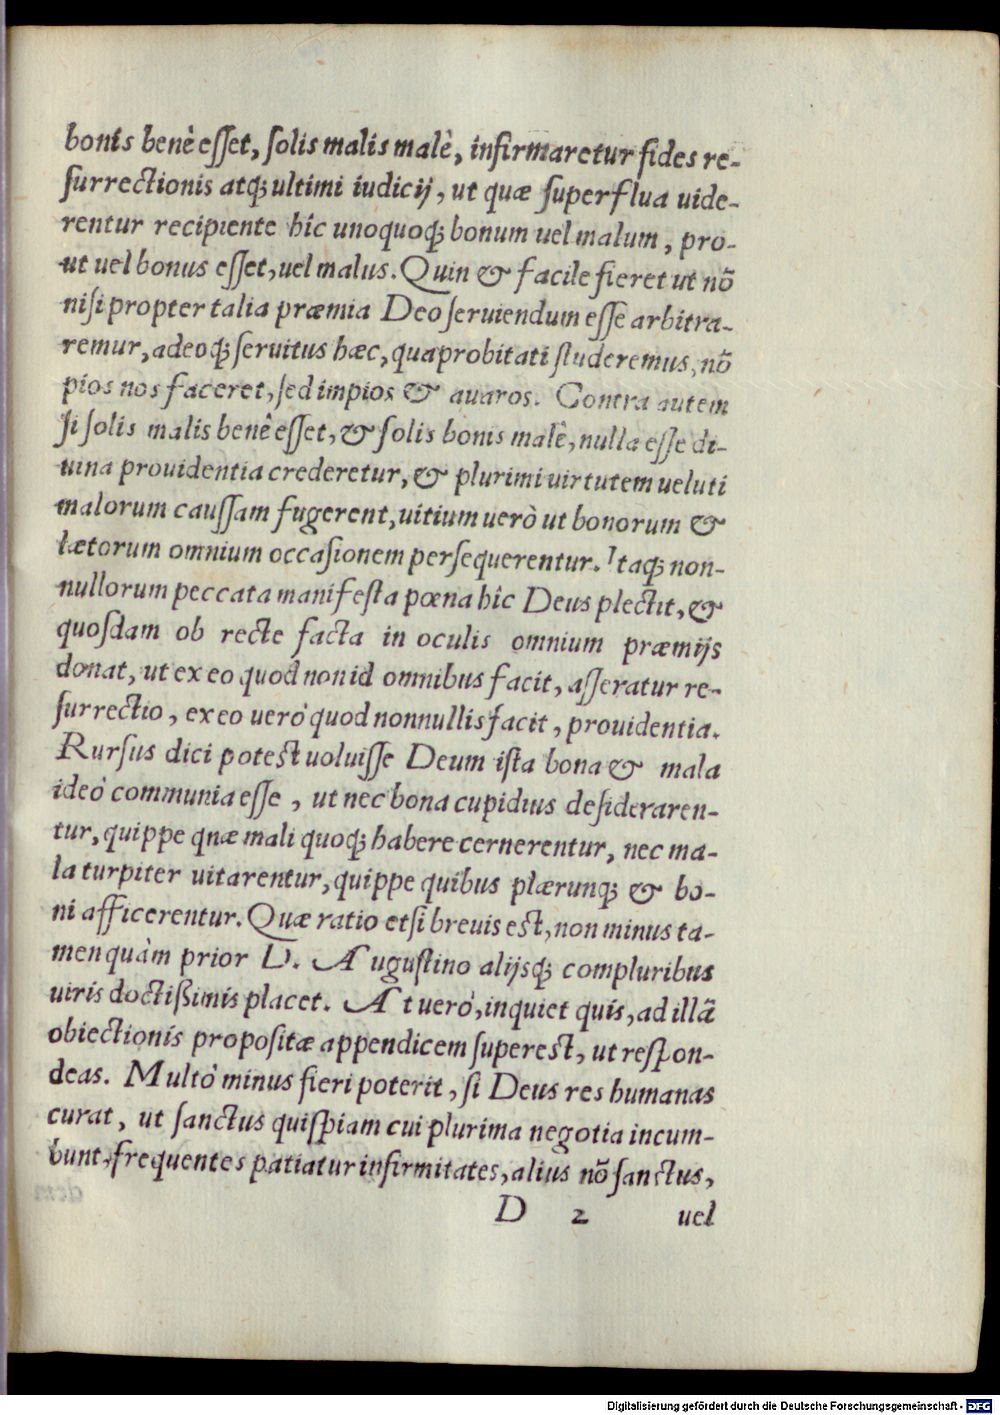 bonis benè esset, solis malis malè, infirmaretur fides re-
surrectionis atq; ultimi iudicij, ut quæ superflua uide-
rentur recipiente hîc unoquoq; bonum uel malum, pro-
ut uel bonus esset, uel malus. Quin & facile fieret ut nō
nisi propter talia præmia Deo seruiendum esse arbitra-
remur, adeoq; seruitus hæc, qua probitati studeremus, nō
pios nos faceret, sed impios & auaros. Contra autem
si solis malis benè esset, & solis bonis malè, nulla esse di-
uina prouidentia crederetur, & plurimi uirtutem ueluti
malorum caussam fugerent, uitium uerò ut bonorum &
lætorum omnium occasionem persequerentur. Itaq; non-
nullorum peccata manifesta pœna hîc Deus plectit, &
quosdam ob recte facta in oculis omnium præmijs
donat, ut ex eo quod non id omnibus facit, asseratur re-
surrectio, ex eo uerò quod nonnullis facit, prouidentia.
Rursus dici potest uoluisse Deum ista bona & mala
ideò communia esse, ut nec bona cupidius desideraren-
tur, quippe qnæ mali quoq; habere cernerentur, nec ma-
la turpiter uitarentur, quippe quibus plærunq; & bo-
ni afficerentur. Quæ ratio etsi breuis est, non minus ta-
men quàm prior D. Augustino alijsq; compluribus
uiris doctißimis placet. At uerò, inquiet quis, ad illā
obiectionis propositæ appendicem superest, ut respon-
deas. Multò minus fieri poterit, si Deus res humanas
curat, ut sanctus quispiam cui plurima negotia incum-
bunt, frequentes patiatur infirmitates, alius nō sanctus,
D 2 uel
Digitalisierung gefördert durch die Deutsche Forschungsgemeinschaft - DFG